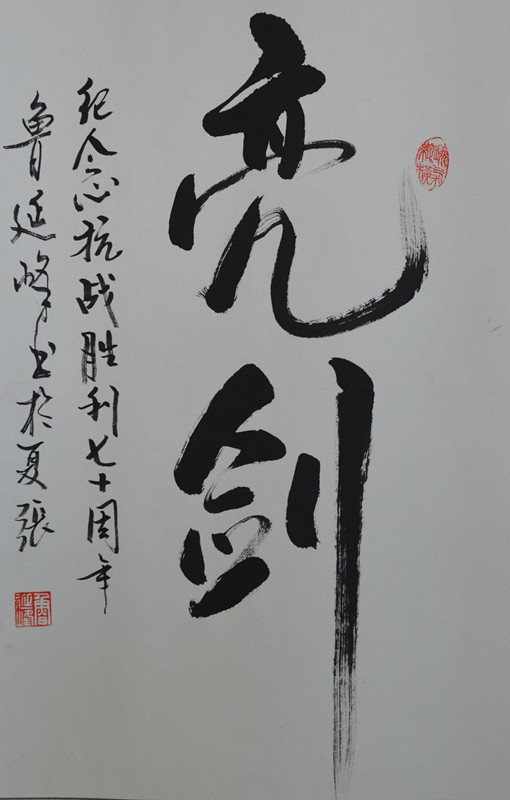 亮剑
纪念抗战胜利七十周年
鲁延峰书于夏張